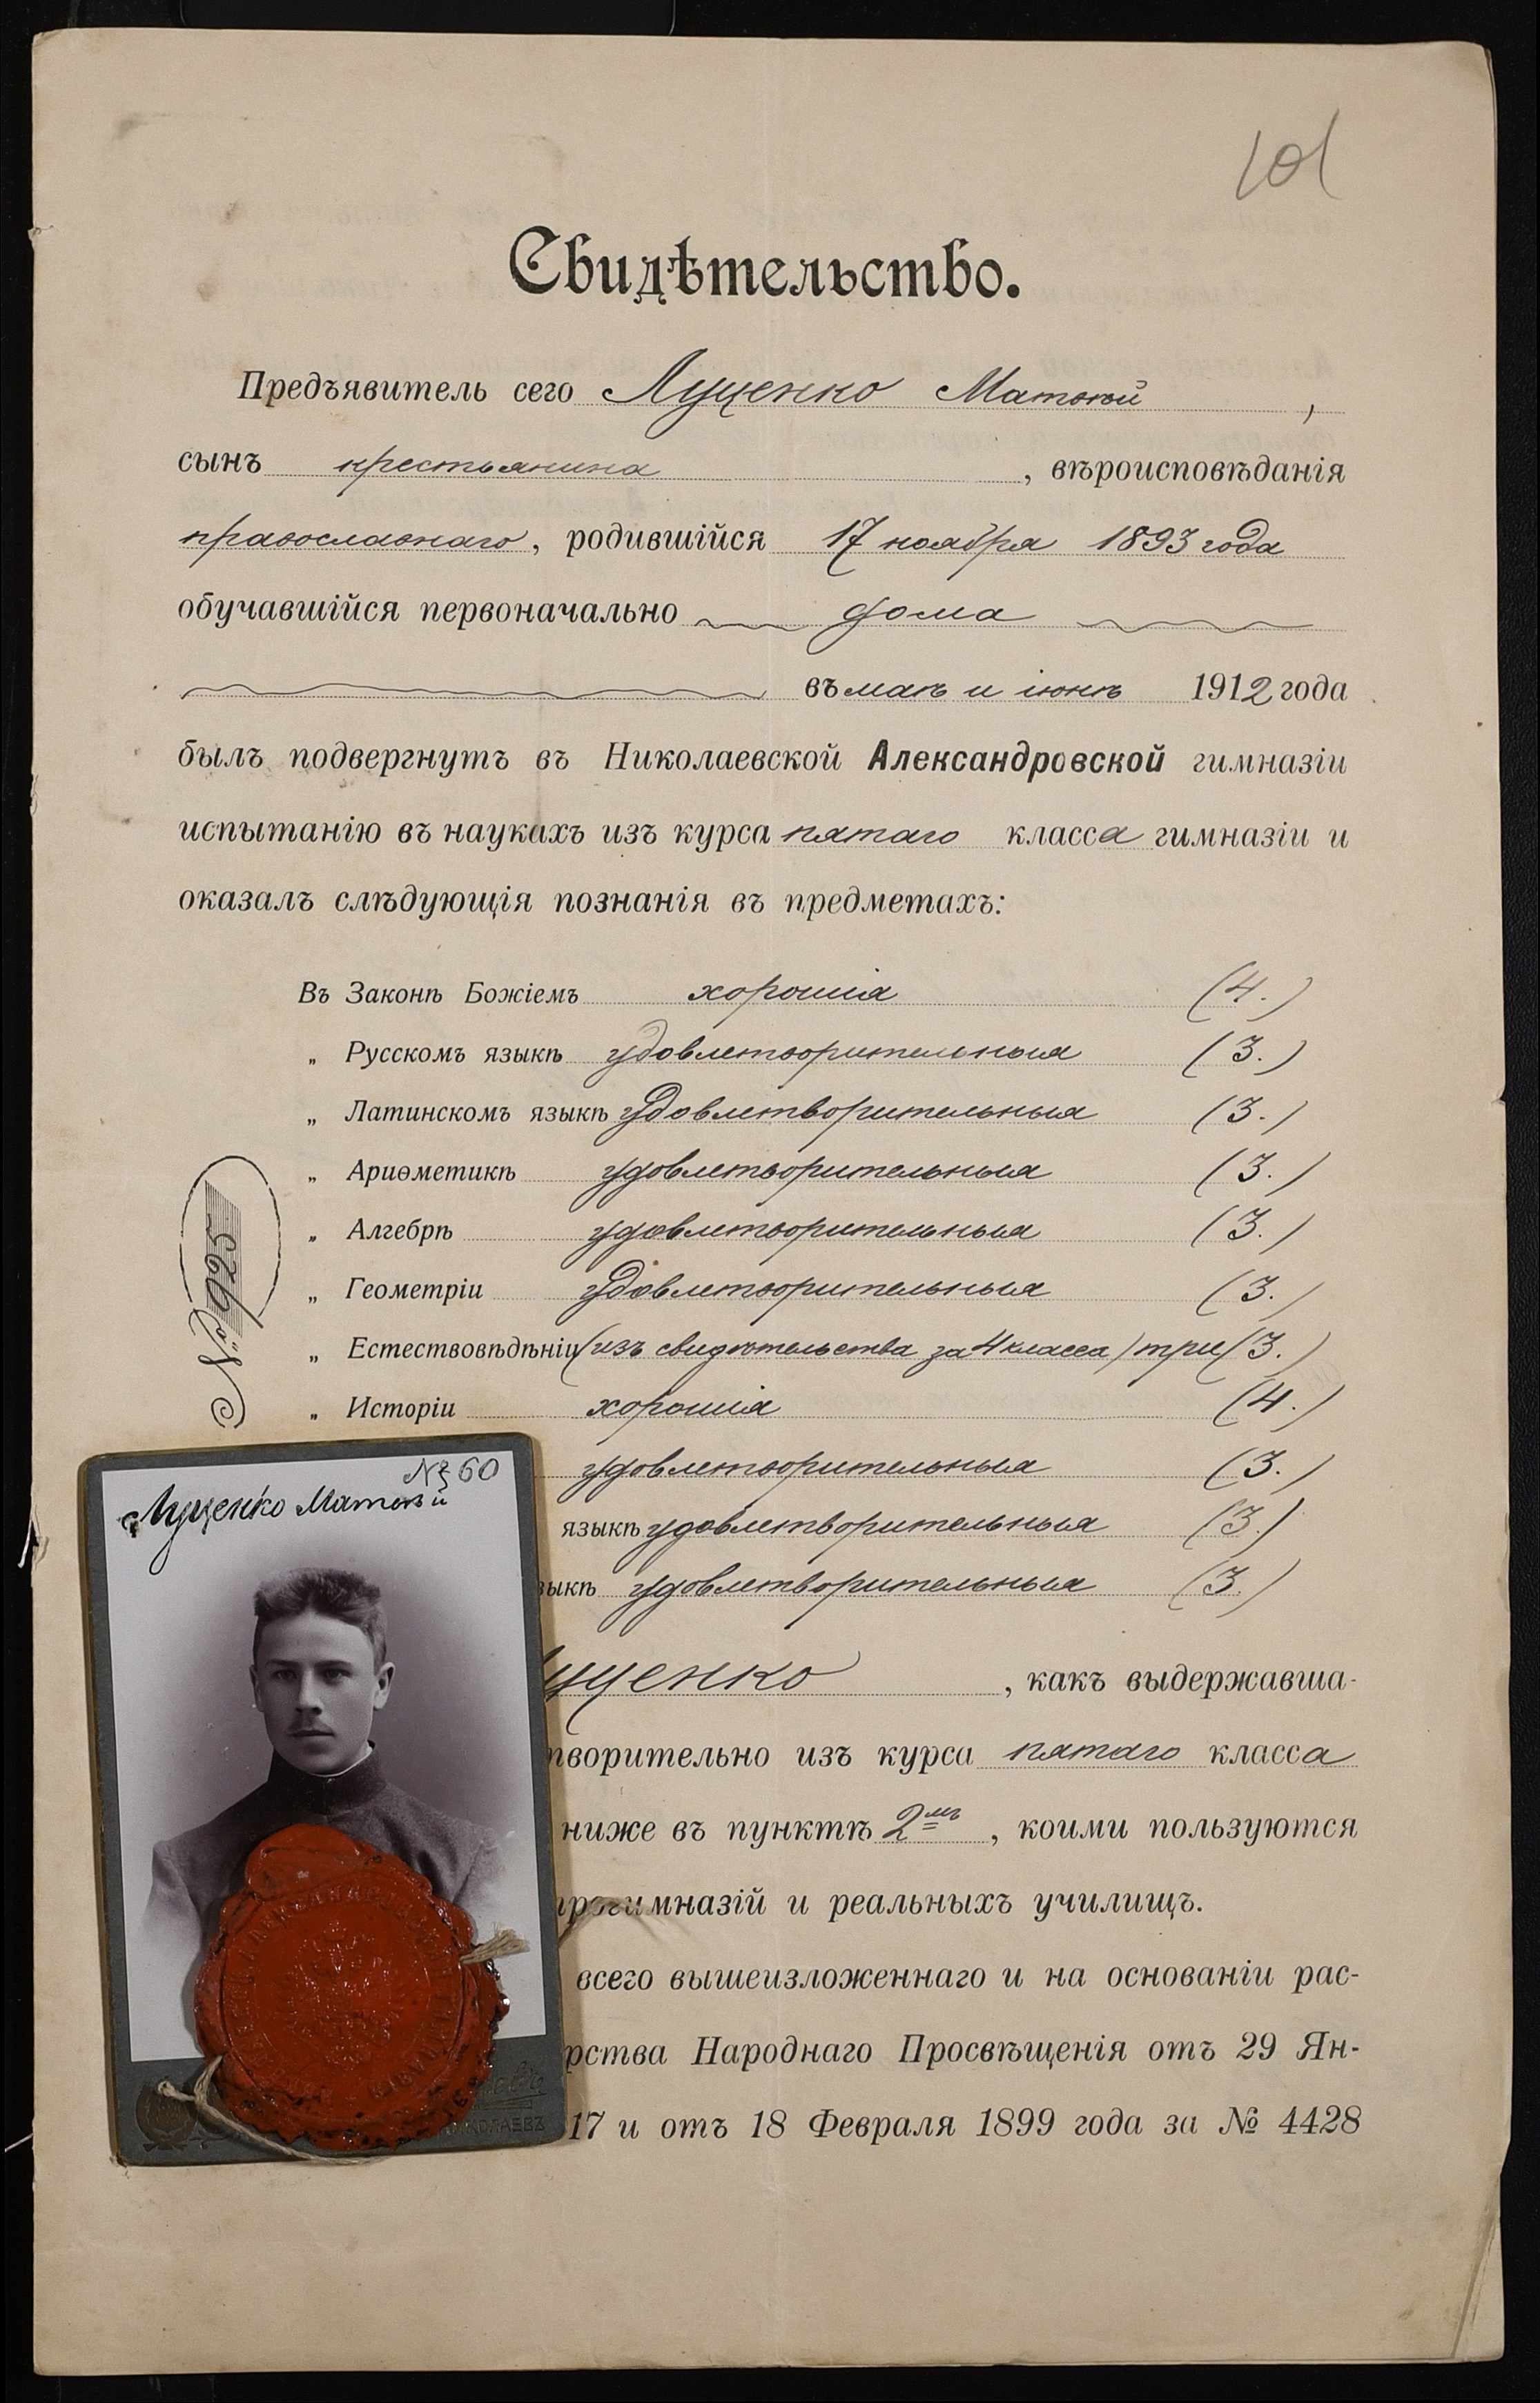 101
Свидѣтельство.
Предъявитель сего Луценко Матвѣй ,
сынъ крестьянина , вѣроисповѣданія
православнаго, родившійся 17 ноября 1893 года
обучавшійся первоначально дома
въ маѣ и іюнѣ 1912 года
былъ подвергнутъ въ Николаевской Александровской гимназіи
испытанію въ наукахъ изъ курса пятаго класса гимназіи и
оказалъ слѣдующія познанія въ предметахъ:
Въ Законѣ Божіемъ хорошія (4.)
„ Русскомъ языкѣ удовлетворительныя (3.)
„ Латинскомъ языкѣ удовлетворительныя (3.)
„ Ариѳметикѣ удовлетворительныя (3.)
„ Алгебрѣ удовлетворительныя (3.)
„ Геометріи удовлетворительныя (3.)
„ Естествовѣдѣніи (изъ свидѣтельства за 4 класса) три (3.)
„ Исторіи хорошія (4.)
удовлетворительныя (3.)
языкѣ удовлетворительныя (3.)
зыкѣ удовлетворительныя (3.)
уценко , какъ выдержавша-
творительно изъ курса пятаго класса
ниже въ пунктѣ 2мъ , коими пользуются
прогимназій и реальныхъ училищъ.
всего вышеизложеннаго и на основаніи рас-
рства Народнаго Просвѣщенія отъ 29 Ян-
17 и отъ 18 Февраля 1899 года за № 4428
№ 925
№ 60
Луценко Матвѣй
НИКОЛАЕВЪ